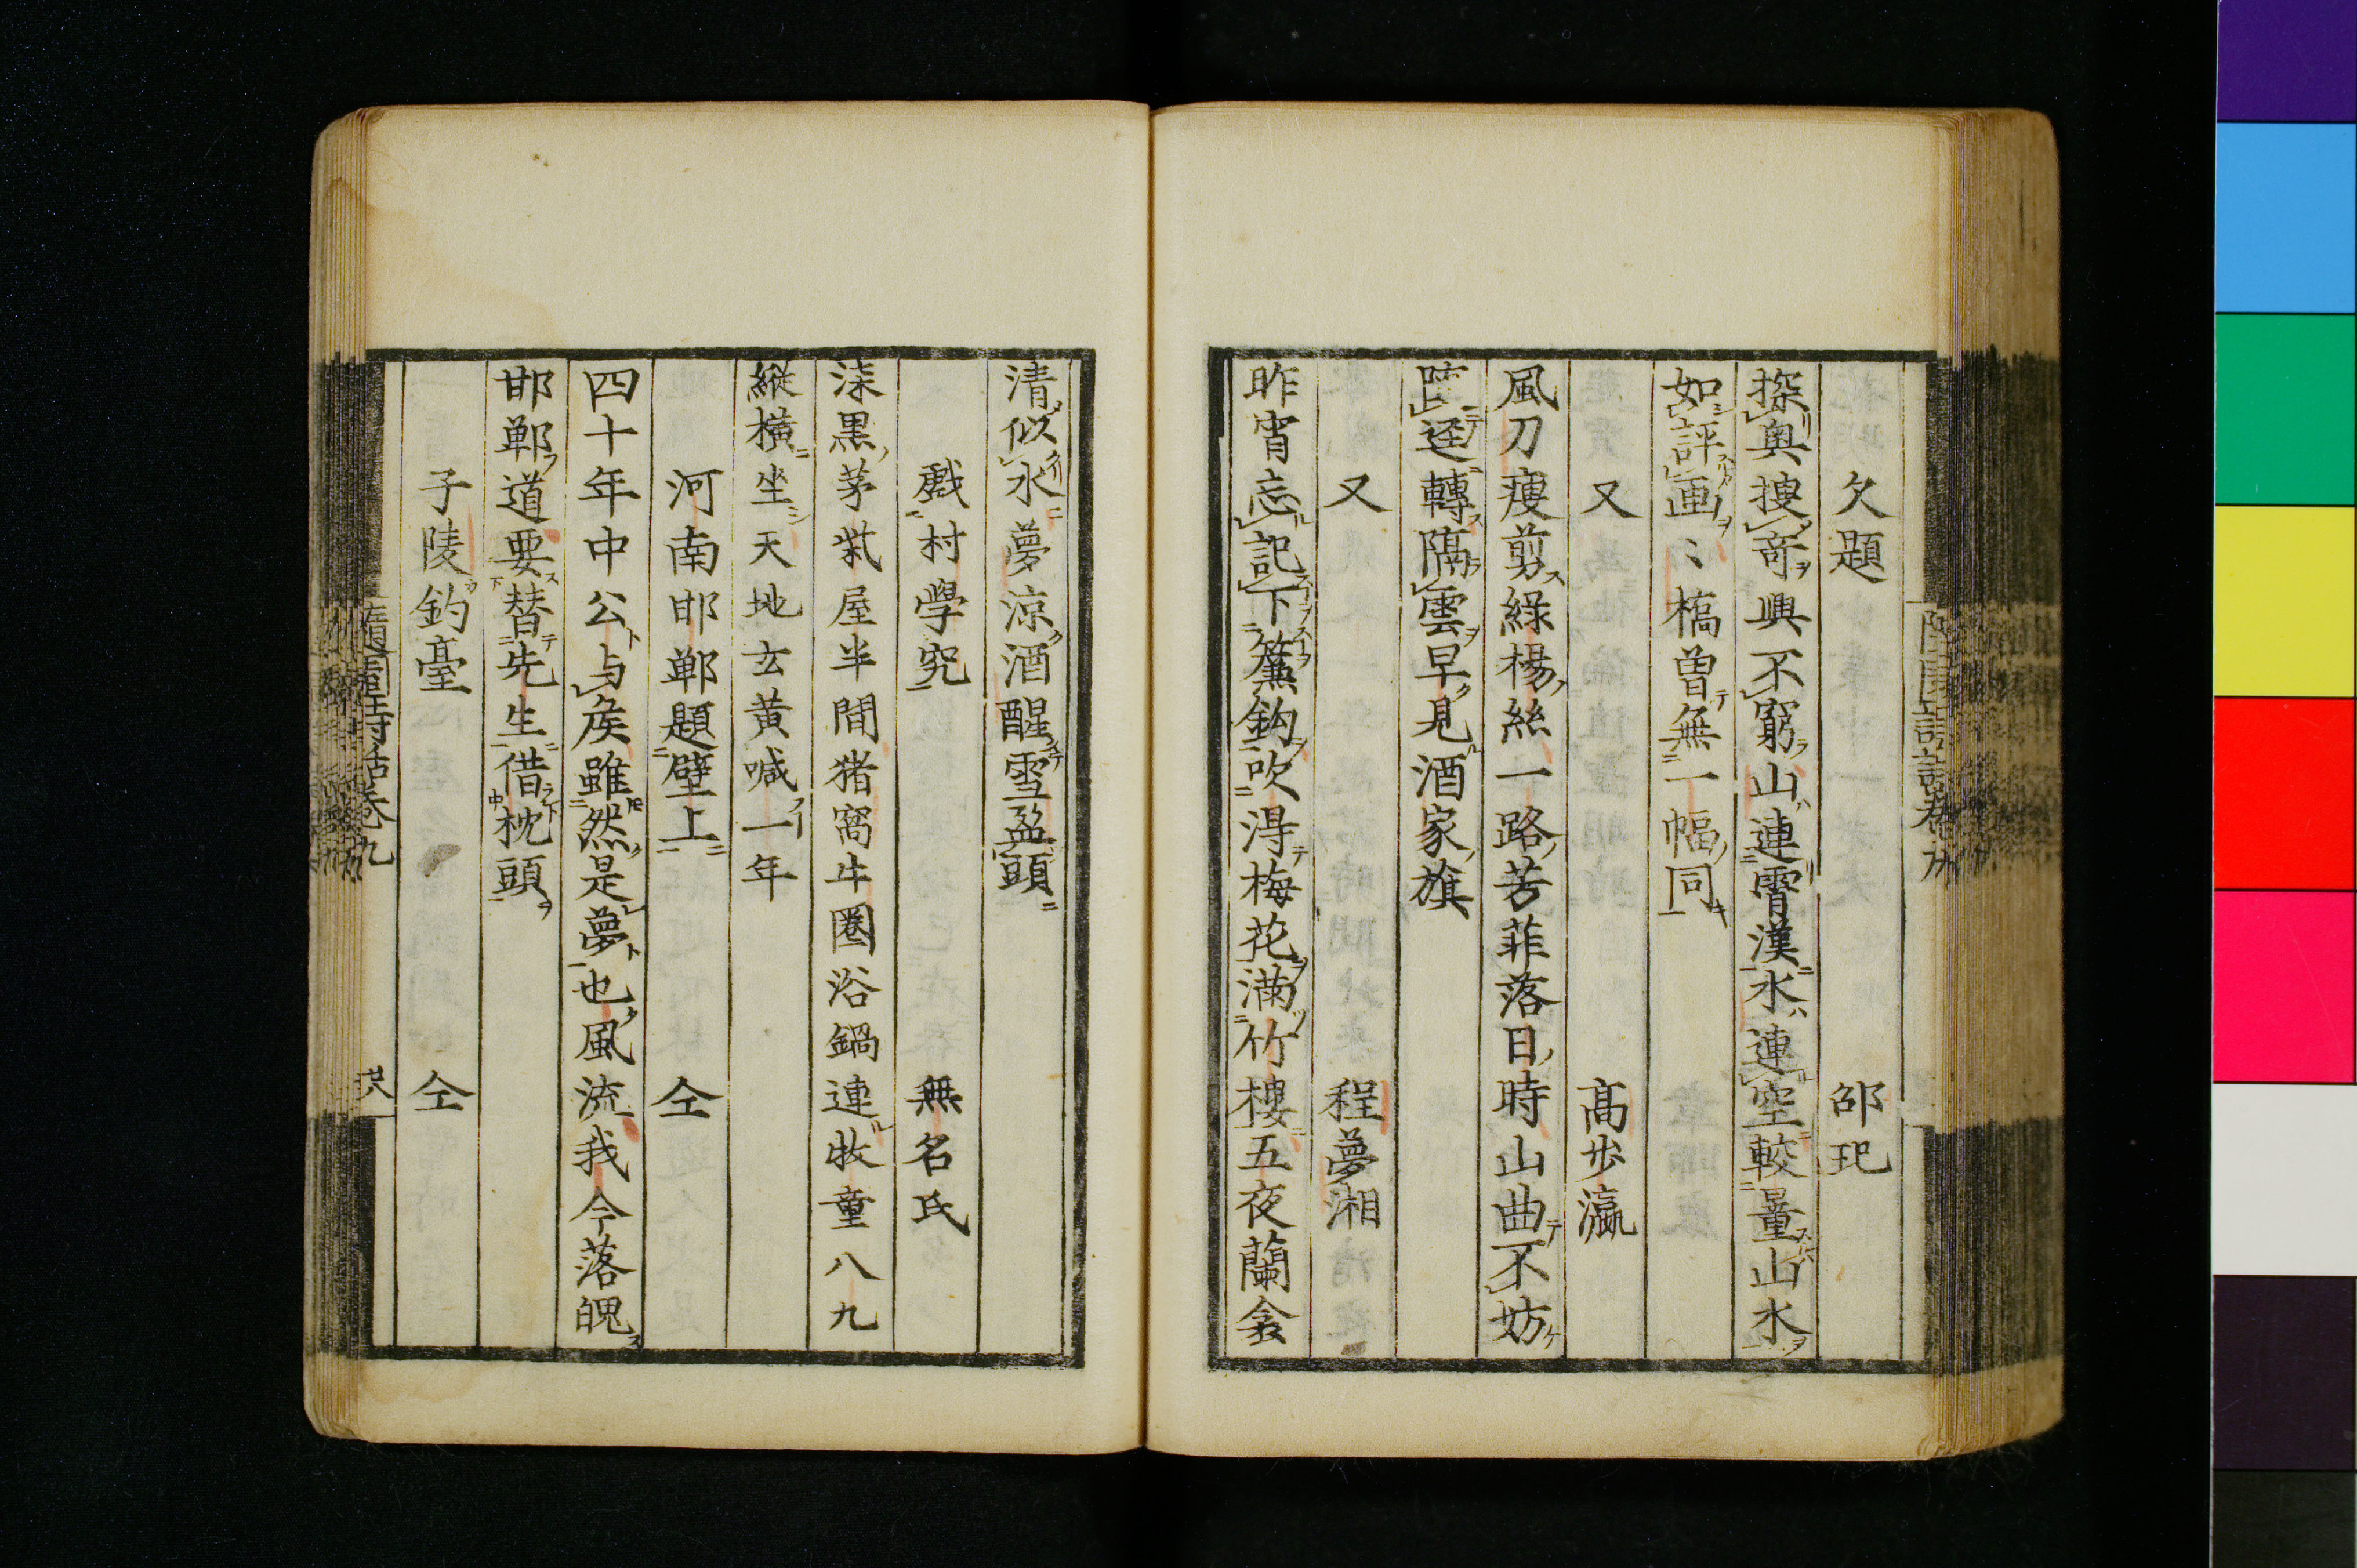 欠題 邵玘
探奥搜奇興不窮山連霄漢水連空較量山水
如評画〻橋曽無一幅同
又 髙步瀛
風刀瘦剪綠楊絲一路芳菲落日時山曲不妨
迳轉隔雲早見酒家旗
又 程夢湘
昨宵忘記下簾鈎吹淂梅花滿竹樓五夜蘭衾
清似水夢涼酒醒雪盈頭
戲村學究 無名氏
漆黒茅柴屋半間猪窩牛圈浴鍋連牧童八九
縱橫坐天地玄黄喊一年
河南邯鄲題壁上 仝
四十年中公与侯雖然是夢也風流我今落魄
邯鄲道要替先生借枕頭
子陵釣臺 仝
隨園詩話卷九